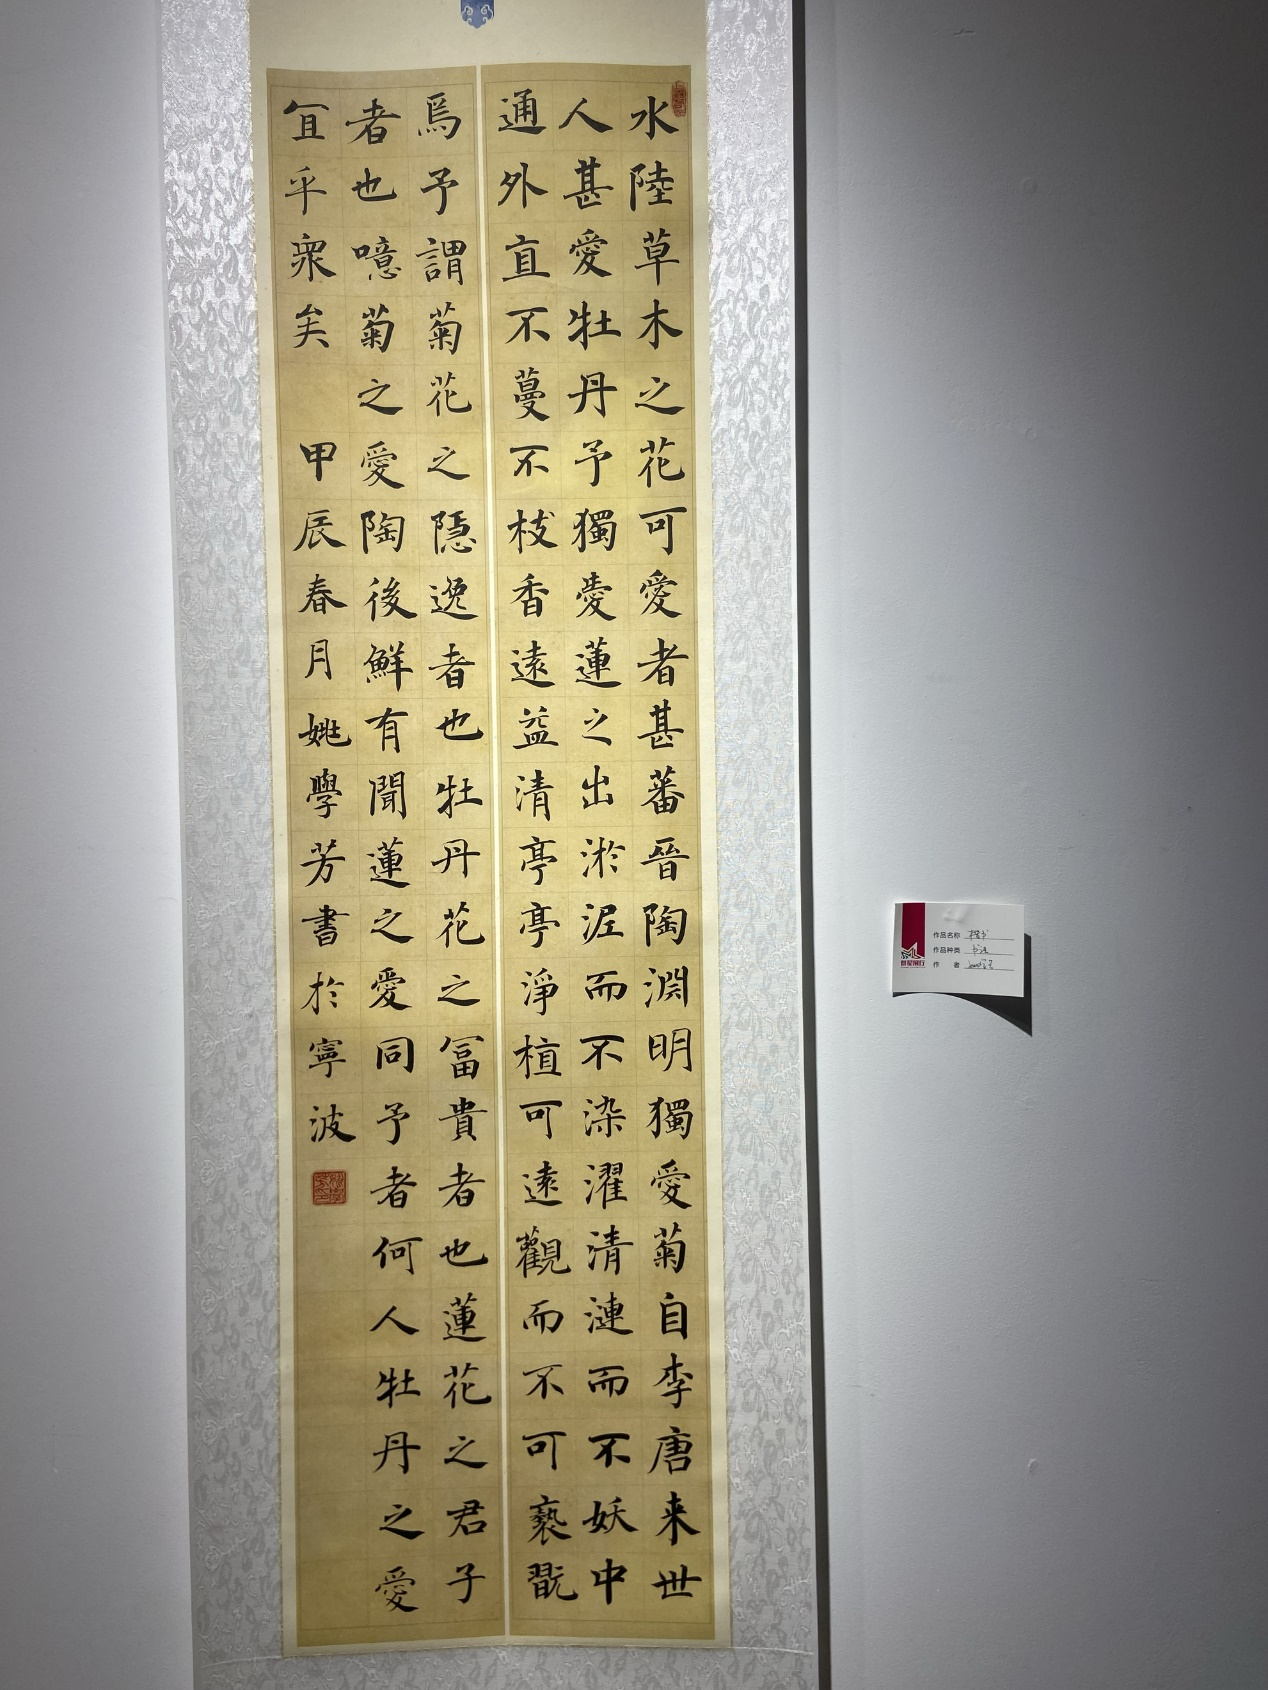 水陸草木之花可愛者甚蕃晉陶淵明獨愛菊自李唐来世
人甚愛牡丹予獨愛蓮之出淤泥而不染濯清漣而不妖中
通外直不蔓不枝香遠益清亭亭淨植可遠觀而不可褻翫
焉予謂菊花之隱逸者也牡丹花之冨貴者也蓮花之君子
者也噫菊之愛陶後鮮有聞蓮之愛同予者何人牡丹之愛
宜乎衆矣 甲辰春月姚學芳書於寧波
作品名称 楷书
作品种类 书法
作 者